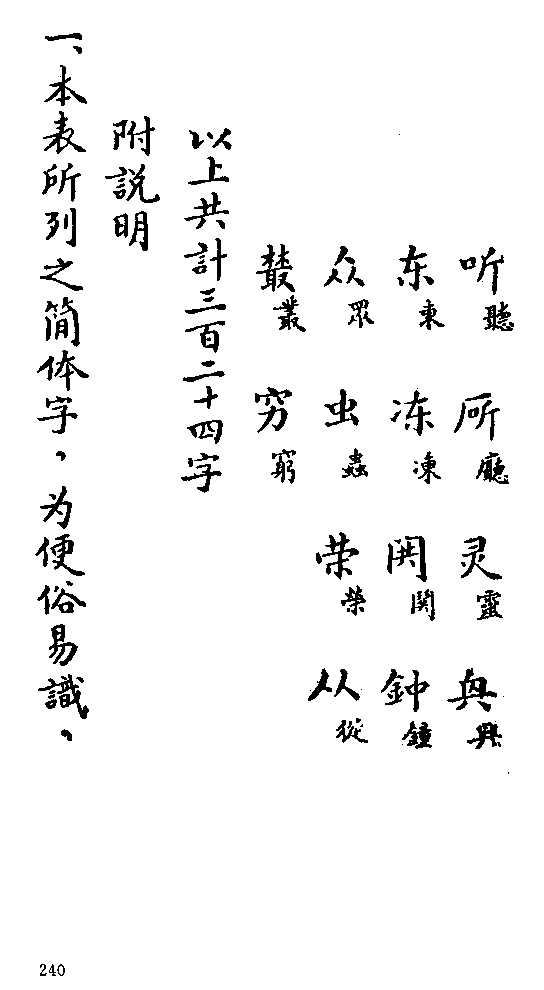 听聽 厛廳 灵靈 興
东東 冻凍 鈡鐘
众眾 虫蟲 荣榮 从從
叢 穷窮
以上共計三百二十四字
附説明
一、本表所列之简体字，为便俗易識，
240